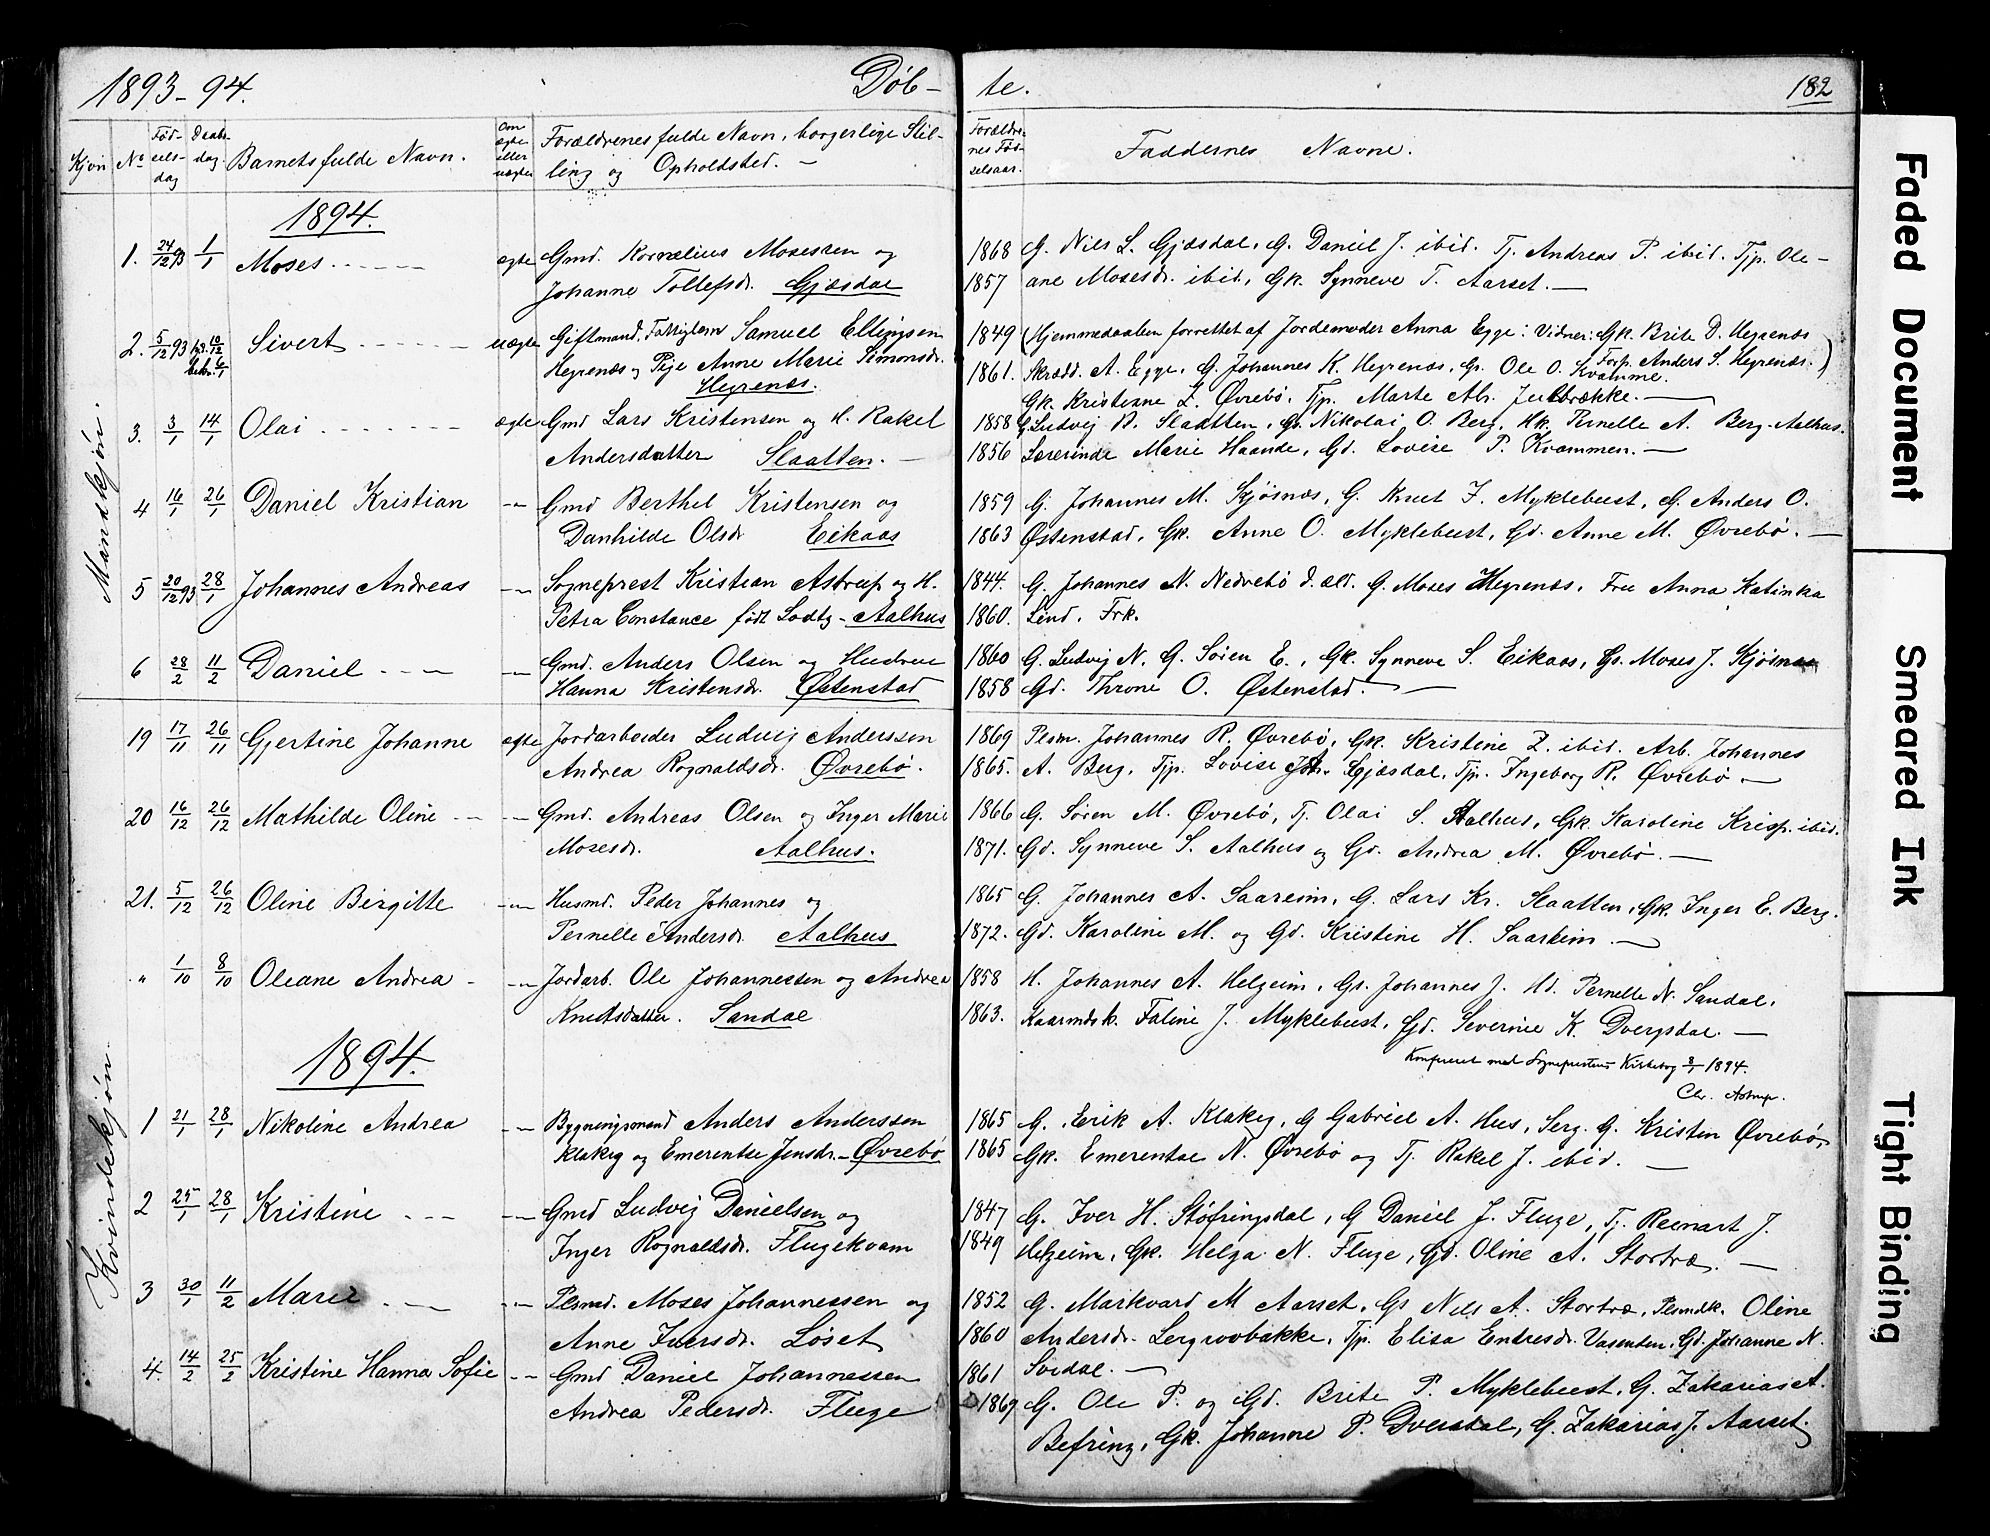 1893-94. Døb- te. 182
Kjön No Fød- sels- dag Daabs- dag. Barnets fulde Navn. Om ægte eller uægte Forældrenes fulde Navn, borgerlige Stil- ling og Opholdsted. - Forældre- nes Fød- selsaar. Faddernes Navne.
Mandskjön.
1894.
1. 24/12 93 1/1 Moses ægte Gmd. Kornelius Mosessen og 1868 G. Nils L. Gjæsdal, G. Daniel J. ibid. Tj. Andreas P. ibid. Tjp. Ole-
Johanne Tollefsdr. Gjæsdal 1857 ane Mosesdr. ibid, Gk. Synneve T. Aarset. -
2. 5/12 93 10/12 6/1 Sivert uægte Giftmand, Fattiglem Samuel Ellingsen 1849 (Hjemmedaaben forrettet af Jordemoder Anna Egge: Vidner: Gk. Brite D. Hegrenæs
Hegrenæs og Pige Anne Marie Simonsdr. 1861. Skrædd. A. Egge, G. Johannes K. Hegrenæs, Gs. Ole O. Kvamme. Forp. Anders S. Hegrenæs.)
Hegrenæs. Gk. Kristenne Z. Øvrebø, Tjp. Marte Ab. Julbrække. -
3. 3/1 14/1 Olai ægte Gmd Lars Kristensen og H. Rakel 1858 G. Ludvig B. Slaatten, Gs. Nikolai O. Berg, Hk. Pernelle A. Berg-Aalhus.
Andersdatter Slaatten. - 1856 Lærerinde Marie Haande, Gd. Lovise P. Kvammen. -
4 16/1 26/1 Daniel Kristian -"- Gmd Berthel Kristensen og 1859 G. Johannes M. Kjøsnæs, G. Knut J. Myklebust, G. Anders O.
Danhilde Olsdr Eikaas 1863 Østenstad, Gk. Anne O. Myklebust, Gd. Anne M. Øvrebö. -
5 20/12 93 28/1 Johannes Andreas -"- Sogneprest Kristian Astrup og H. 1844. G. Johannes N. Nedrebö d. æld. G. Moses Hegrenæs. Fru Anna Katinka
Petra Constance født Lodtz - Aalhus 1860. Lind. Frk.
6 28/2 11/2 Daniel -"- Gmd. Anders Olsen og Hustrue 1860 G. Ludvig N. G. Søren E., Gk. Synneve S. Eikaas, Gs. Moses J. Kjøsnæs
Hanna Kristensdr. Østenstad 1858 Gd. Throne O. Østenstad. -
19 17/11 26/11 Gjertine Johanne ægte Jordarbeider Ludvig Anderssen 1869 Plsm. Johannes R. Øvrebø, Gk. Kristine Z. ibid. Arb. Johannes
Andrea Rognaldsdr. Øvrebø. 1865. A. Berg, Tjp. Lovise Joh. Gjæsdal, Tjp. Ingeborg R. Øvrebø -
20 16/12 26/12 Mathilde Oline -"- Gmd. Andreas Olsen og Inger Marie 1866 G. Søren M. Øvrebø, Tj. Olai S. Aalhus, Gk. Karoline Krisp. ibid.
Mosesdr. Aalhus. 1871. Gd. Synneve S. Aalhus og Gd. Andrea M. Øvrebø. -
21. 5/12 26/12 Oline Birgitte -"- Husmd. Peder Johannes og 1865 G. Johannes A. Saareim, G. Lars Kr. Slaatten, Gk. Inger E. Berg.
Pernelle Andersdr. Aalhus 1872. Gd. Karoline M. og Gd. Kristine H. Saareim. -
" 1/10 8/10 Oleane Andrea -"- Jordarb. Ole Johannessen og Andrea 1858 H. Johannes A. Helgeim, Gs. Johannes J. Hd. Pernelle N. Sandal,
Knudsdatter. Sandal 1863. Kaarmdsk. Faline J. Myklebust, Gd. Severine K. Dvergsdal. -
Kvindekjön.
1894.
Konfereret med Sogneprestens Kirkebog 3/1 1894.
Chr. Astrup.
1 21/1 28/1 Nikoline Andrea -"- Bygningsmand Anders Anderssen 1865 G. Erik A. Klakeg, G Gabriel A. Hus, Serg. G. Kristen Øvrebø,
Klakeg og Emerentse Jensdr. - Øvrebö 1865 Gk. Emerentse N. Øvrebö og Tj. Rakel J. ibid. -
2 25/1 28/1 Kristine -"- Gmd Ludvig Danielsen og 1847 G. Iver H. Støfringsdal, G Daniel J. Fluge, Tj. Reinart J.
Inger Rognaldsdr. Flugekvam 1849 Helgeim, Gk. Helga N. Fluge, Gd. Oline A. Stortræ. -
3 30/1 11/2 Marie -"- Plsmd. Moses Johannessen og 1852 G. Markvard M Aarset, Gs Nils A. Stortræ, Plsmdk. Oline
Anne Iversdr. Løset 1860 Andersdr. Lergrovbakke, Tjp. Elisa Endresdr. Vasenden, Gd. Johanne N.
4. 14/2 25/2 Kristine Hanna Sofie -"- Gmd Daniel Johannessen 1861 Svidal. -
Andrea Pedersdr. Fluge 1869 G. Ole P. og Gd. Brite P. Myklebust, G. Zakarias A.
Befring, Gk. Johanne P. Dvergsdal, G. Zakarias J. Aarset.
Faded Document
Smeared Ink
Tight Binding